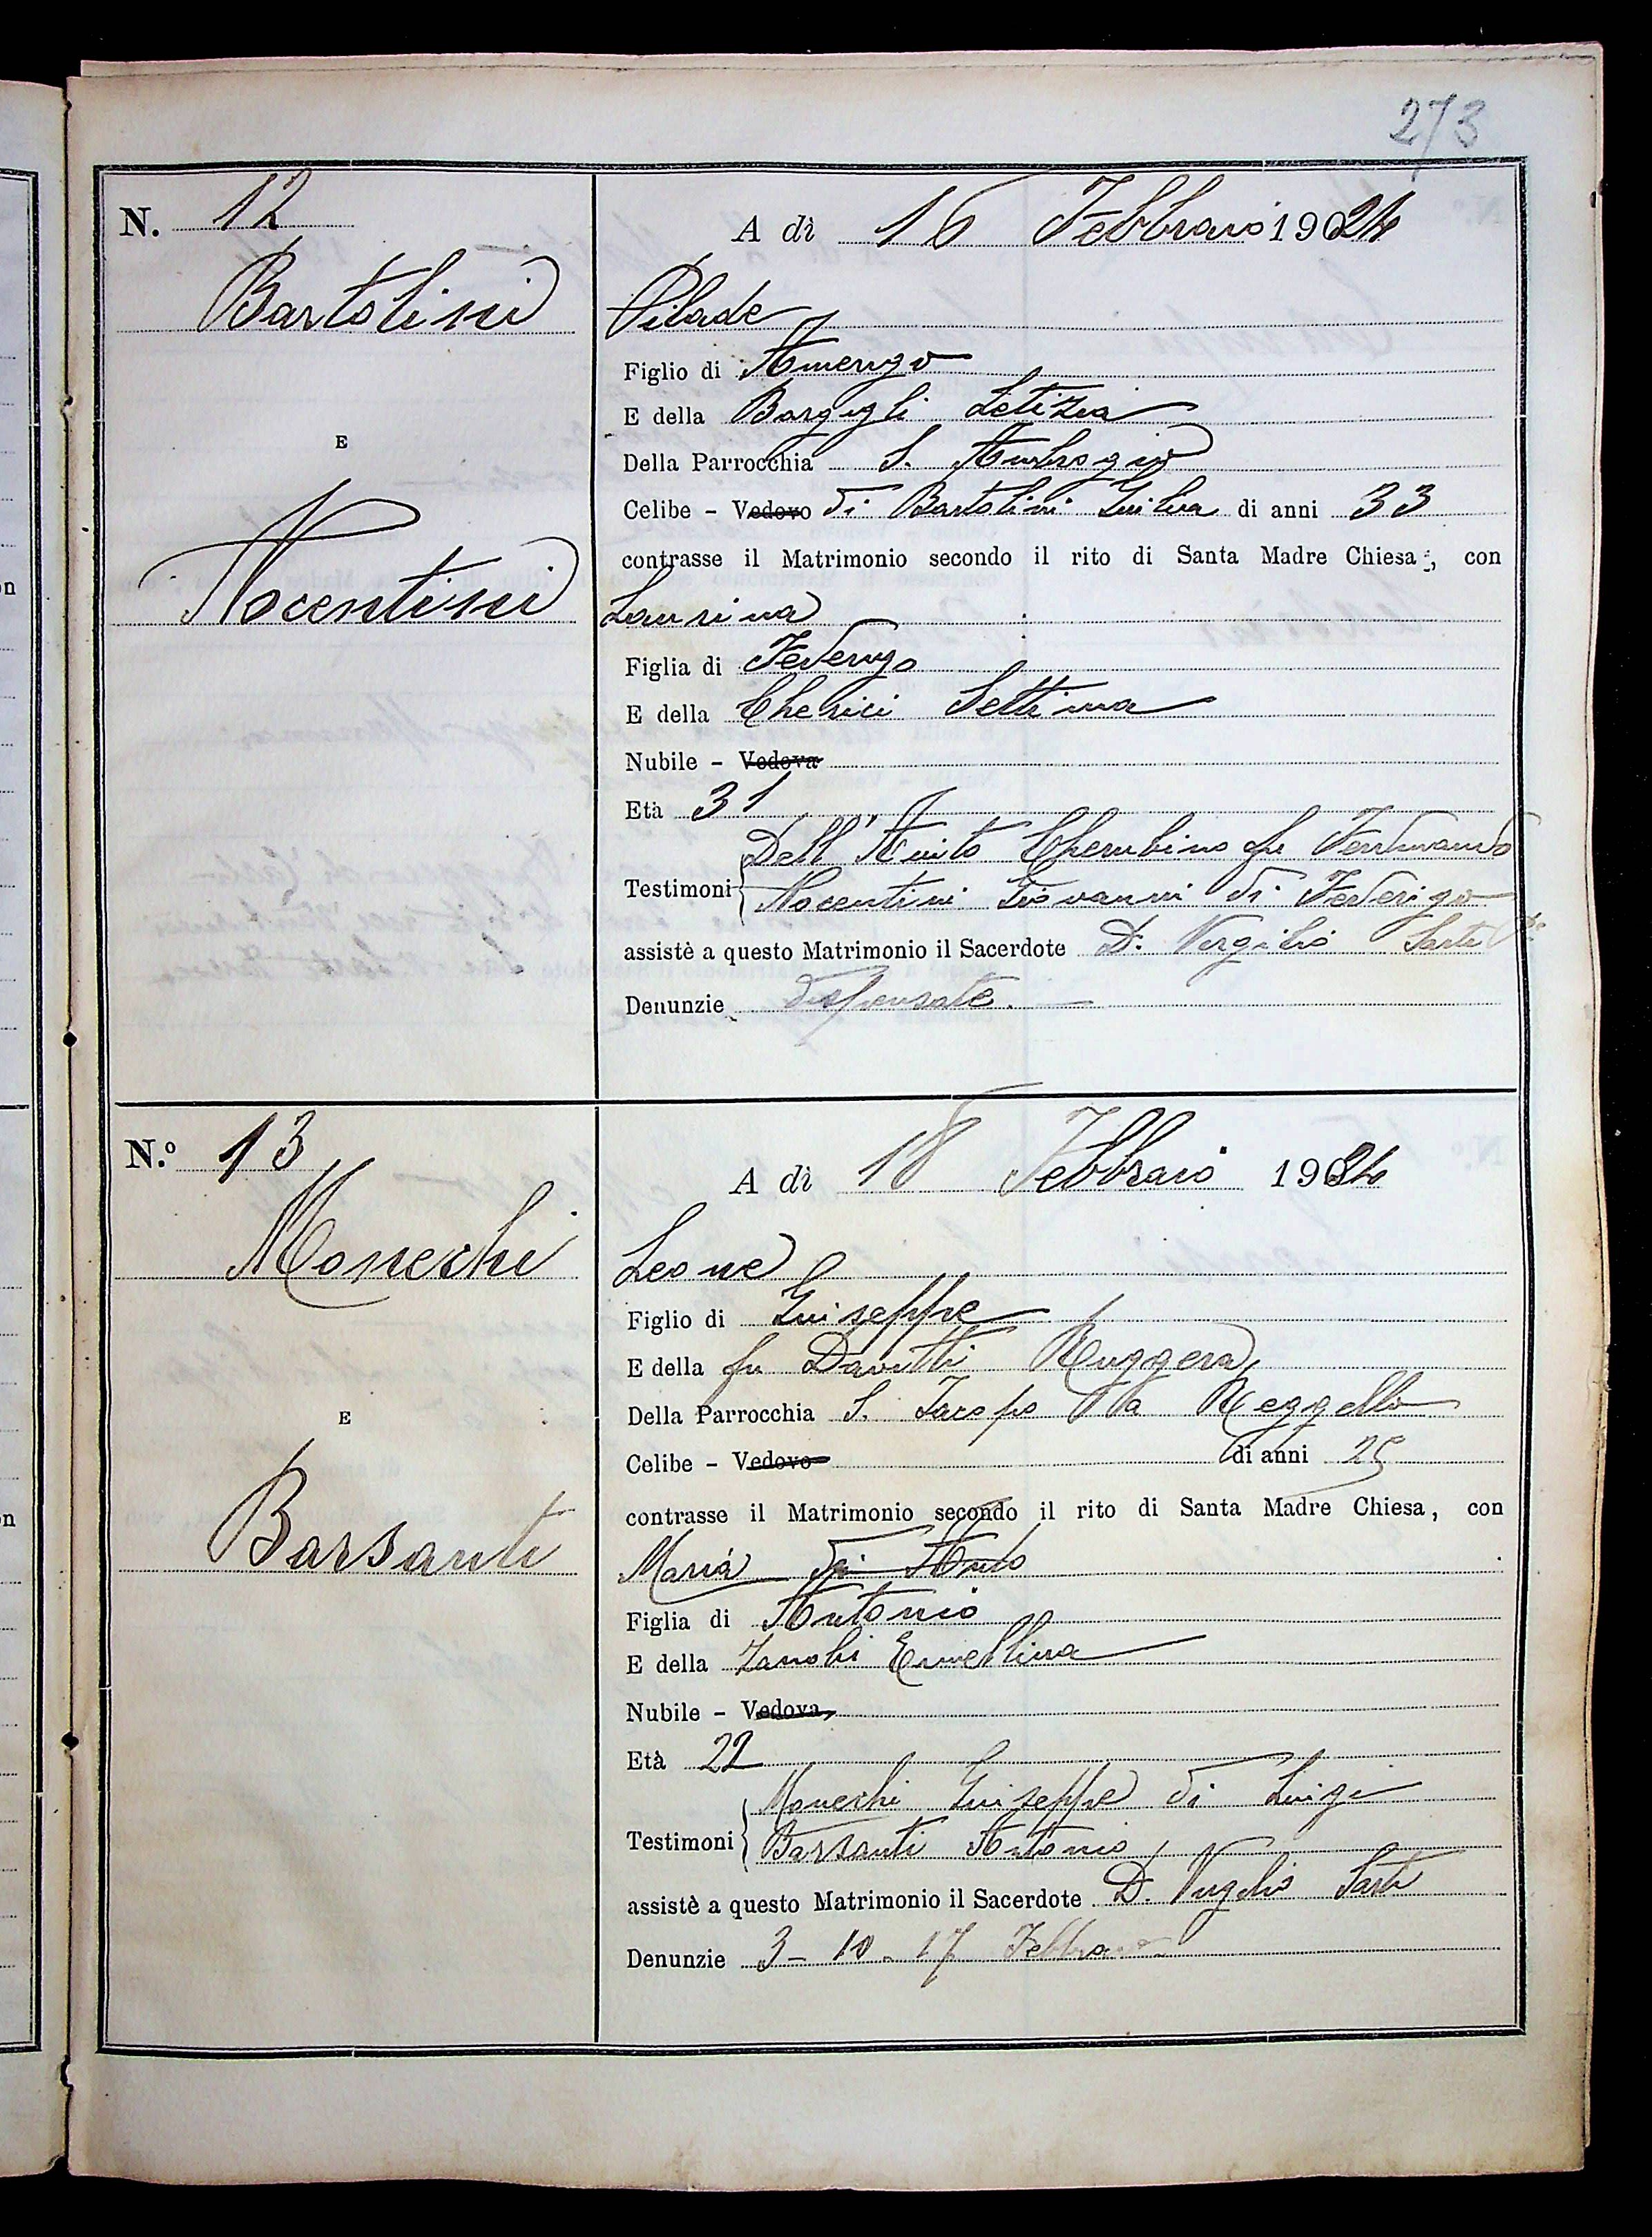 273
N. 12
A dì 16 Febbraio 1924
Bartolini
Pilade
Figlio di Amerigo
E della Bargigli Letizia
E
Della Parrocchia S. Ambrogio
Celibe - Vedovo di Bartolini Giulia di anni 33
contrasse il Matrimonio secondo il rito di Santa Madre Chiesa, con
Nocentini
Laurina
Figlia di Federigo
E della Cherici Settima
Nubile - Vedova
Età 31
Testimoni Dell' Cherubino fu Ferdinando
Nocentini Giovanni di Federigo
assistè a questo Matrimonio il Sacerdote D. Virgilio Sarti
Denunzie dispensate.
N.º 13
A dì 18 Febbraio 1924
Monechi
Leone
Figlio di Giuseppe
E della fu Davitti Ruggera
Della Parrocchia S. Jacopo a Reggello
E
Celibe - Vedovo di anni 25
contrasse il Matrimonio secondo il rito di Santa Madre Chiesa, con
Barsanti
Maria di Anto
Figlia di Antonio
E della Zanobi Ermellina
Nubile - Vedova
Età 22
Testimoni Monechi Giuseppe di Luigi
Barsanti Antonio
assistè a questo Matrimonio il Sacerdote D. Virgilio Sarti
Denunzie 3 - 10 - 17 Febbraio